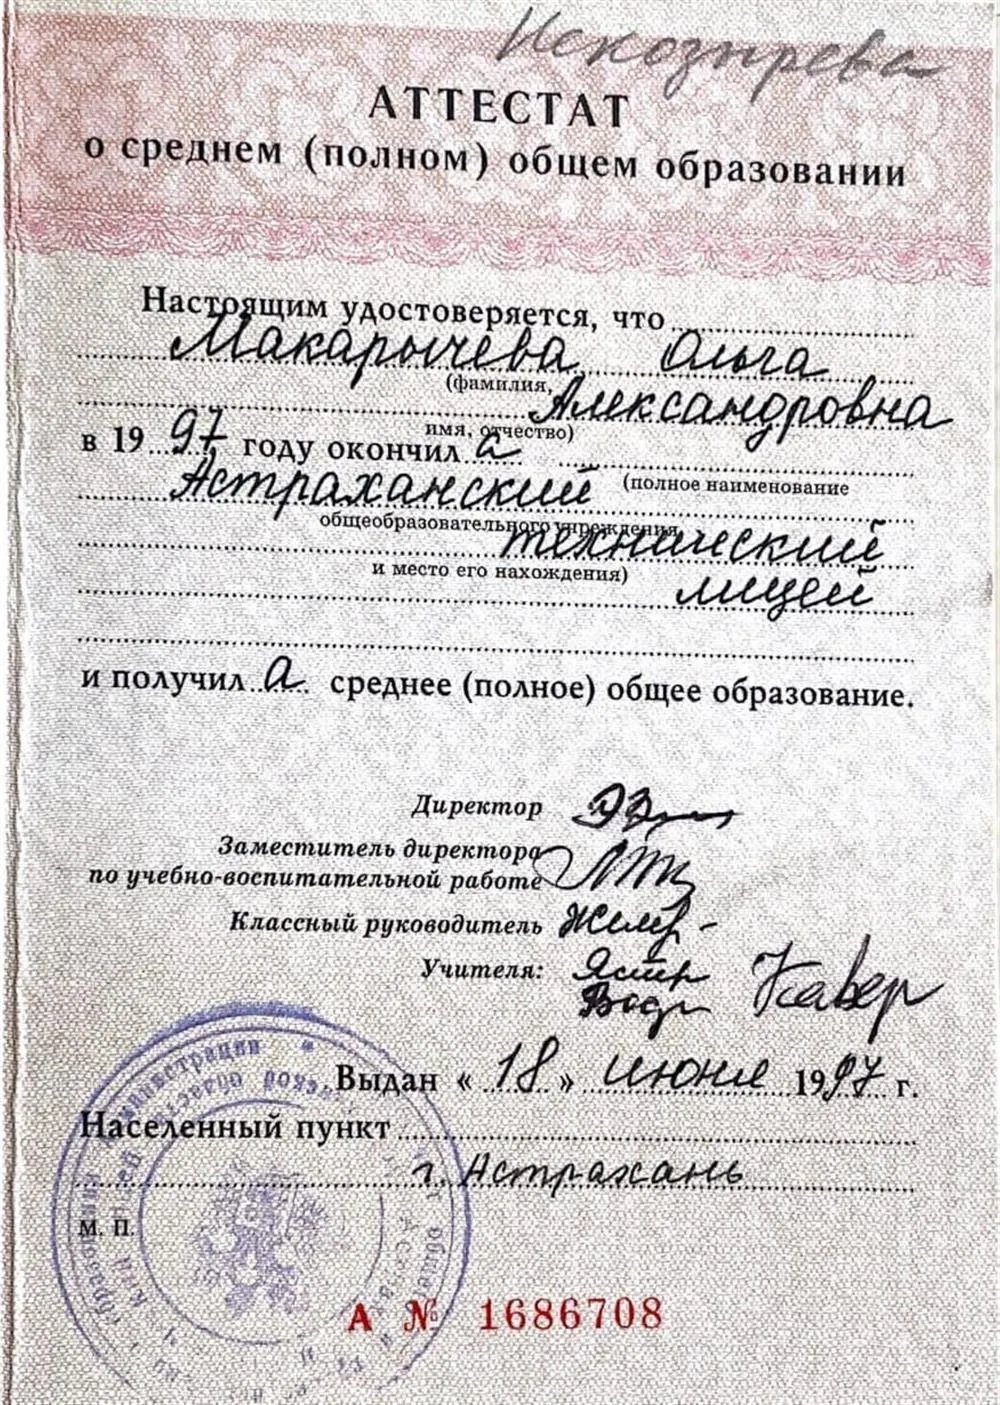 Искозырева
АТТЕСТАТ
о среднем (полном) общем образовании
Настоящим удостоверяется, что
Макарычева Ольга
(фамилия,
Александровна
имя, отчество)
в 19 97 году окончил а
(полное наименование
Астраханский
общеобразовательного учреждения
технический
и место его нахождения)
лицей
и получил а среднее (полное) общее образование.
Директор
Заместитель директора
по учебно-воспитательной работе
Классный руководитель
Учителя:
Выдан « 18 » июня 1997 г.
Населенный пункт
г. Астрахань
М. П.
А № 1686708